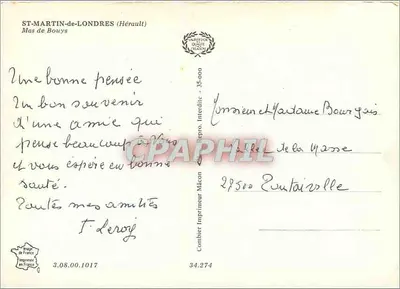 ST-MARTIN-de-LONDRES (Hérault)
Mas de Bouys
Une bonne pensée
Un bon souvenir
d'une amie qui
pense beaucoup à vous
et vous espère en bonne
santé.
Toutes mes amitiés
F. Leroy
Monsieur et Madame Bourgeois
de la Masse
27500
CPARAMA
Combier Imprimeur Mâcon
Repro. Interdite - 35-000
3.08.00.1017
34.274